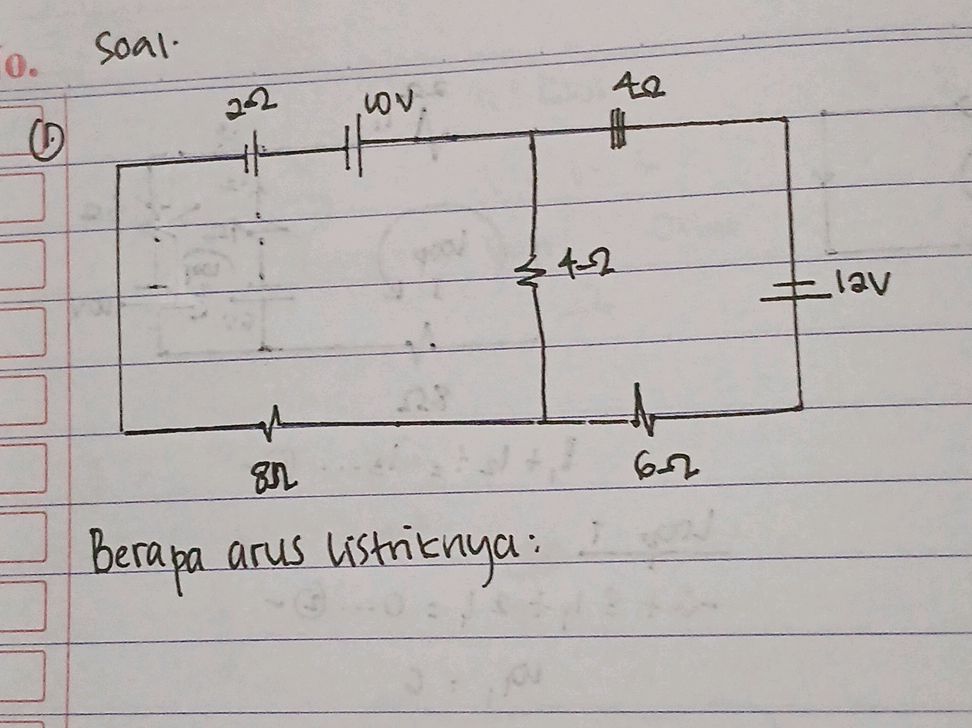 No.
Soal.
①
2Ω
10V
4Ω
4Ω
12V
8Ω
6Ω
Berapa arus listriknya: